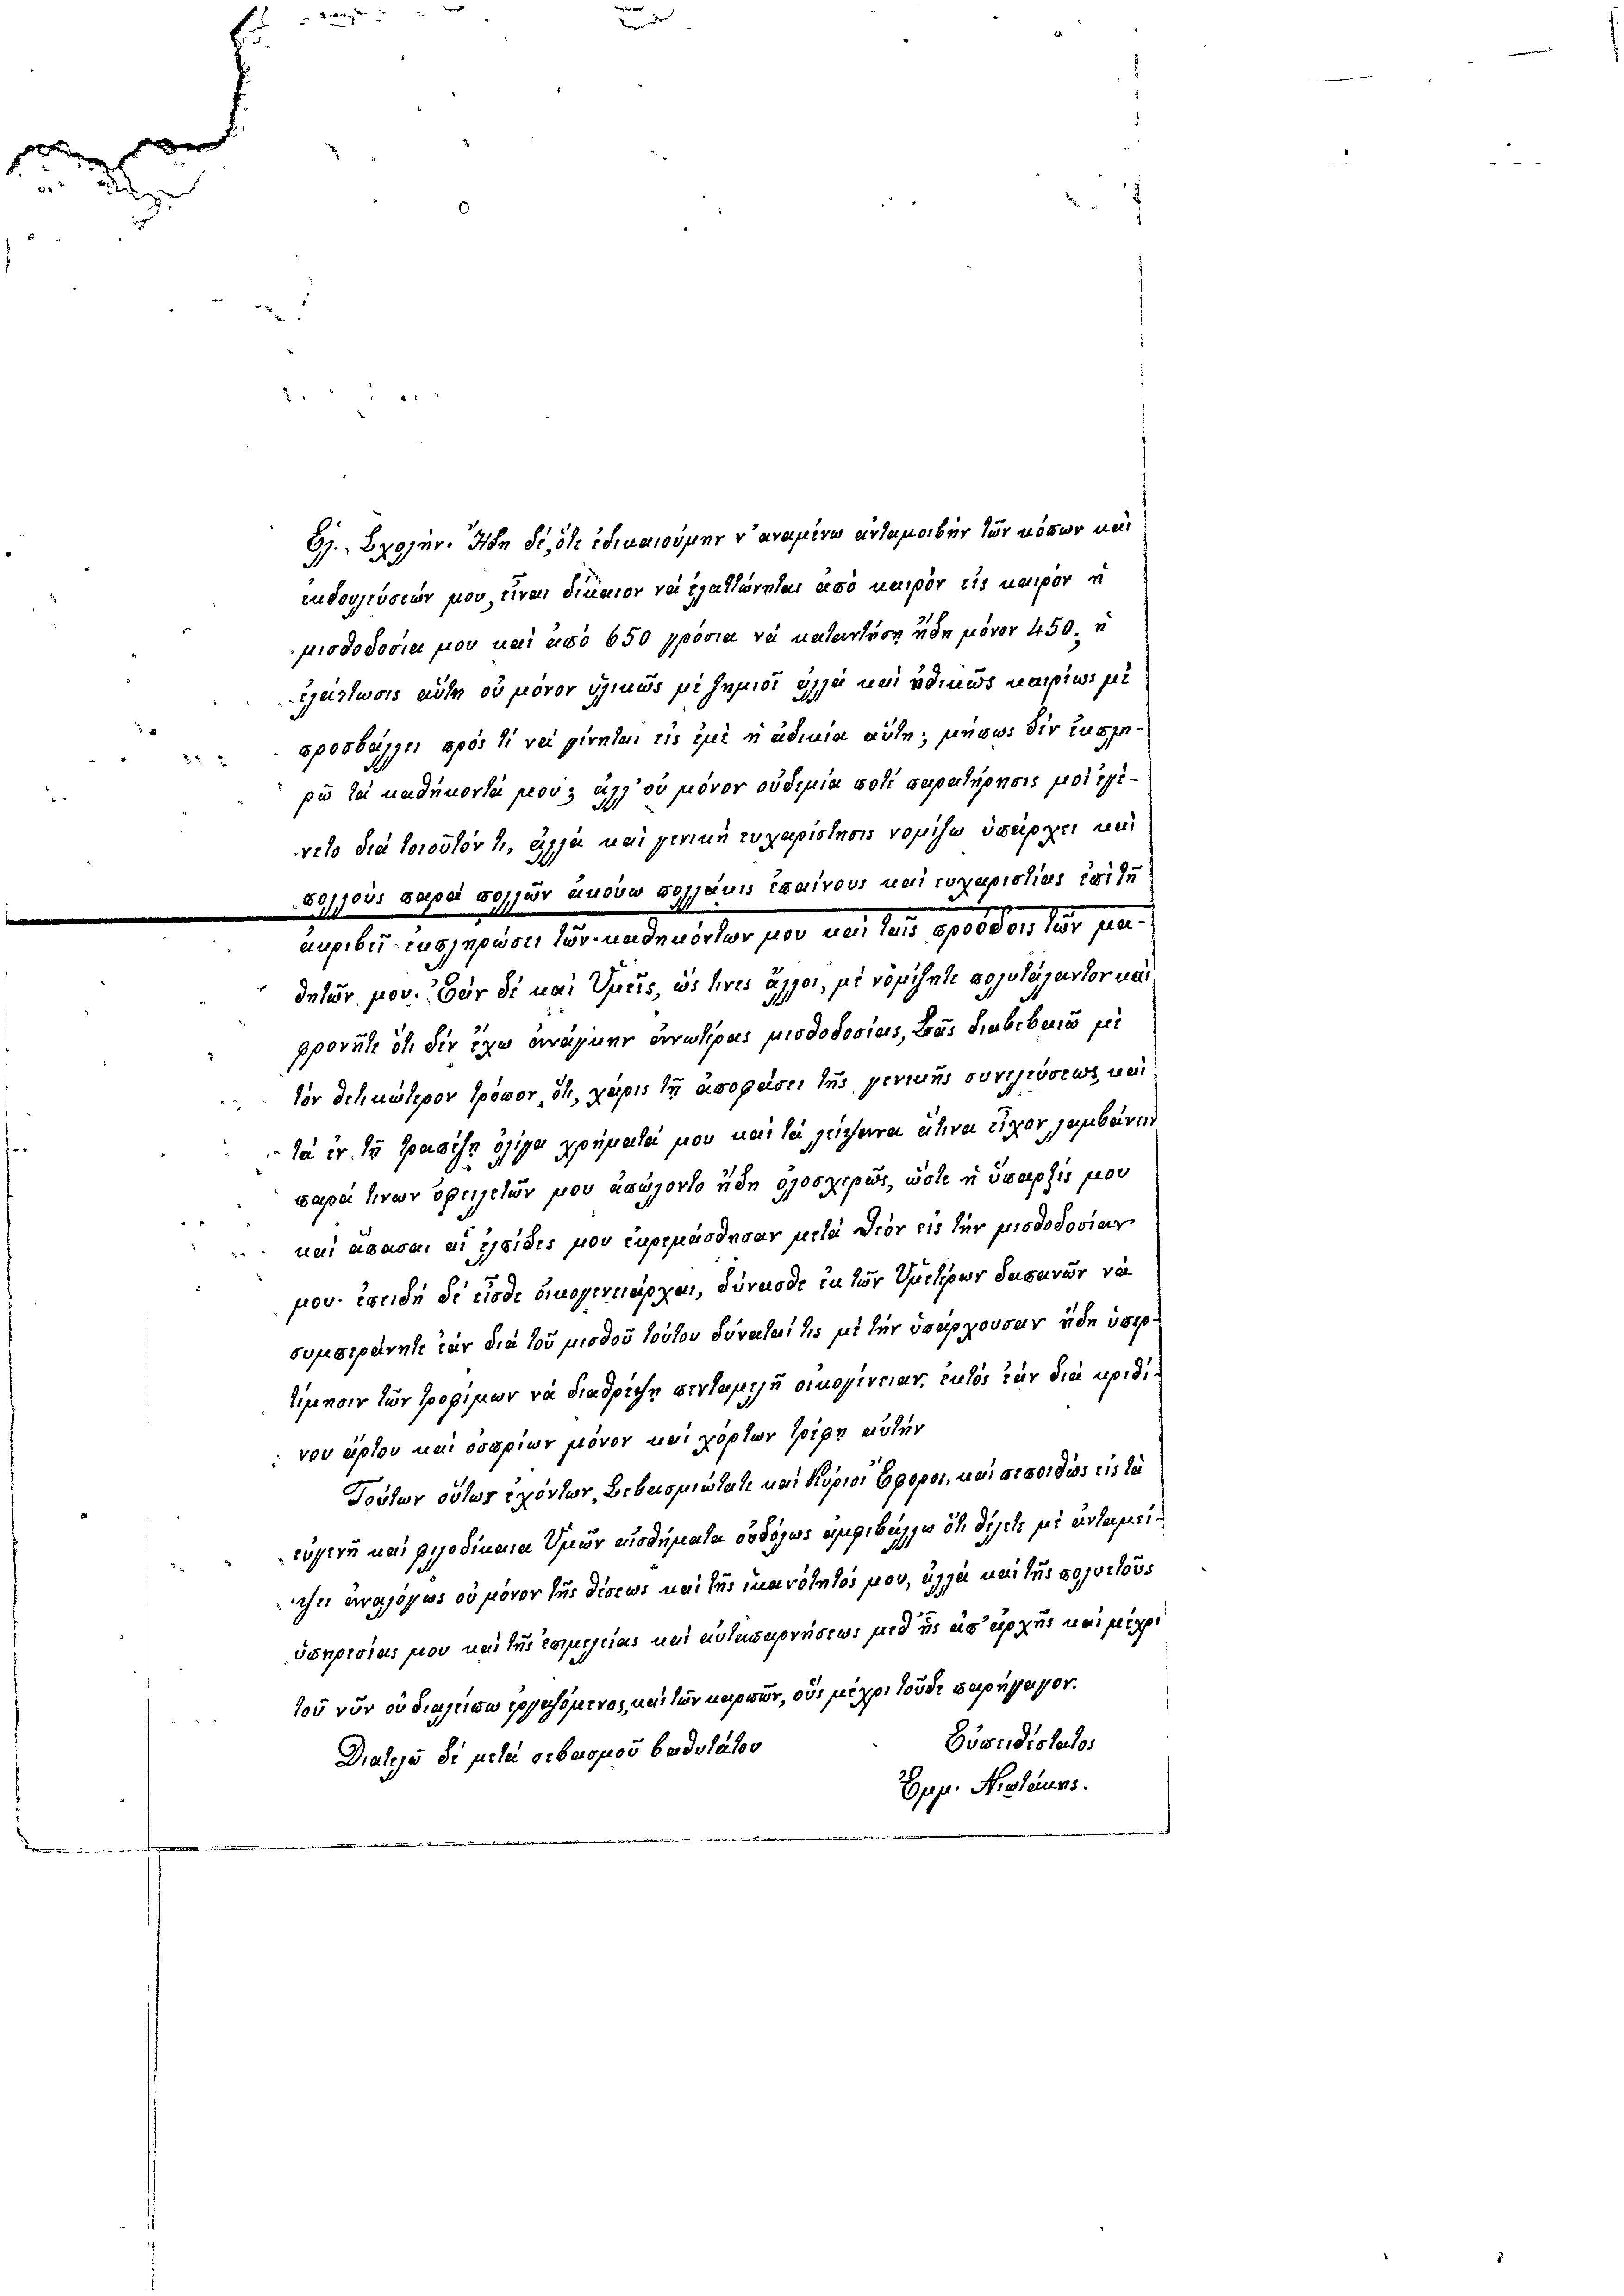 Ἑλ. Σχολήν. Ἤδη δέ, ὅτε ἐδικαιούμην ν' ἀναμένω ἀνταμοιβὴν τῶν κόπων καὶ
ἐκδουλεύσεών μου, εἶναι δίκαιον νὰ ἐλαττώνηται ἀπὸ καιρὸν εἰς καιρὸν ἡ
μισθοδοσία μου καὶ ἀπὸ 650 γρόσια νὰ καταντήσῃ ἤδη μόνον 450; ἡ
ἐλάττωσις αὕτη οὐ μόνον ὑλικῶς μὲ ζημιοῖ ἀλλὰ καὶ ἠθικῶς καιρίως μὲ
προσβάλλει πρὸς τί νὰ γίνηται εἰς ἐμὲ ἡ ἀδικία αὕτη; μήπως δὲν ἐκπλη-
ρῶ τὰ καθήκοντά μου; ἀλλ' οὐ μόνον οὐδεμία ποτὲ παρατήρησις μοὶ ἐγέ-
νετο διὰ τοιοῦτόν τι, ἀλλὰ καὶ γενικὴ εὐχαρίστησις νομίζω ὑπάρχει καὶ
πολλοὺς παρὰ πολλῶν ἀκούω πολλάκις ἐπαίνους καὶ εὐχαριστίας ἐπὶ τῇ
ἀκριβεῖ ἐκπληρώσει τῶν καθηκόντων μου καὶ ταῖς προόδοις τῶν μα-
θητῶν μου. Ἐὰν δὲ καὶ Ὑμεῖς, ὥς τινες ἄλλοι, μὲ νομίζητε πολυτάλαντον καὶ
φρονῆτε ὅτι δὲν ἔχω ἀνάγκην ἀνωτέρας μισθοδοσίας, Σᾶς διαβεβαιῶ μὲ
τὸν θετικώτερον τρόπον, ὅτι, χάρις τῇ ἀποφάσει τῆς γενικῆς συνελεύσεως, καὶ
τὰ ἐν τῇ τραπέζῃ ὀλίγα χρήματά μου καὶ τὰ λείψανα ἅτινα εἶχον λαμβάνειν
παρά τινων ὀφειλετῶν μου ἀπώλοντο ἤδη ὁλοσχερῶς, ὥστε ἡ ὕπαρξίς μου
καὶ ἅπασαι αἱ ἐλπίδες μου ἐκρεμάσθησαν μετὰ Θεὸν εἰς τὴν μισθοδοσίαν
μου. ἐπειδὴ δὲ εἶσθε οἰκογενειάρχαι, δύνασθε ἐκ τῶν Ὑμετέρων δαπανῶν νὰ
συμπεράνητε ἐὰν διὰ τοῦ μισθοῦ τούτου δύναταί τις μὲ τὴν ὑπάρχουσαν ἤδη ὑπερ-
τίμησιν τῶν τροφίμων νὰ διαθρέψῃ πενταμελῆ οἰκογένειαν, ἐκτὸς ἐὰν διὰ κριθί-
νου ἄρτου καὶ ὀσπρίων μόνον καὶ χόρτων τρέφῃ αὐτήν
Τούτων οὕτως ἐχόντων, Σεβασμιώτατε καὶ Κύριοι Ἔφοροι, καὶ πεποιθὼς εἰς τὰ
εὐγενῆ καὶ φιλοδίκαια Ὑμῶν αἰσθήματα οὐδόλως ἀμφιβάλλω ὅτι θέλετε μὲ ἀνταμεί-
ψει ἀναλόγως οὐ μόνον τῆς θέσεως καὶ τῆς ἱκανότητός μου, ἀλλὰ καὶ τῆς πολυετοῦς
ὑπηρεσίας μου καὶ τῆς ἐπιμελείας καὶ αὐταπαρνήσεως μεθ' ἧς ἀπ' ἀρχῆς καὶ μέχρι
τοῦ νῦν οὐ διαλείπω ἐργαζόμενος, καὶ τῶν καρπῶν, οὓς μέχρι τοῦδε παρήγαγον.
Διατελῶ δὲ μετὰ σεβασμοῦ βαθυτάτου
Εὐπειθέστατος
Ἐμμ. Νιστάκης.